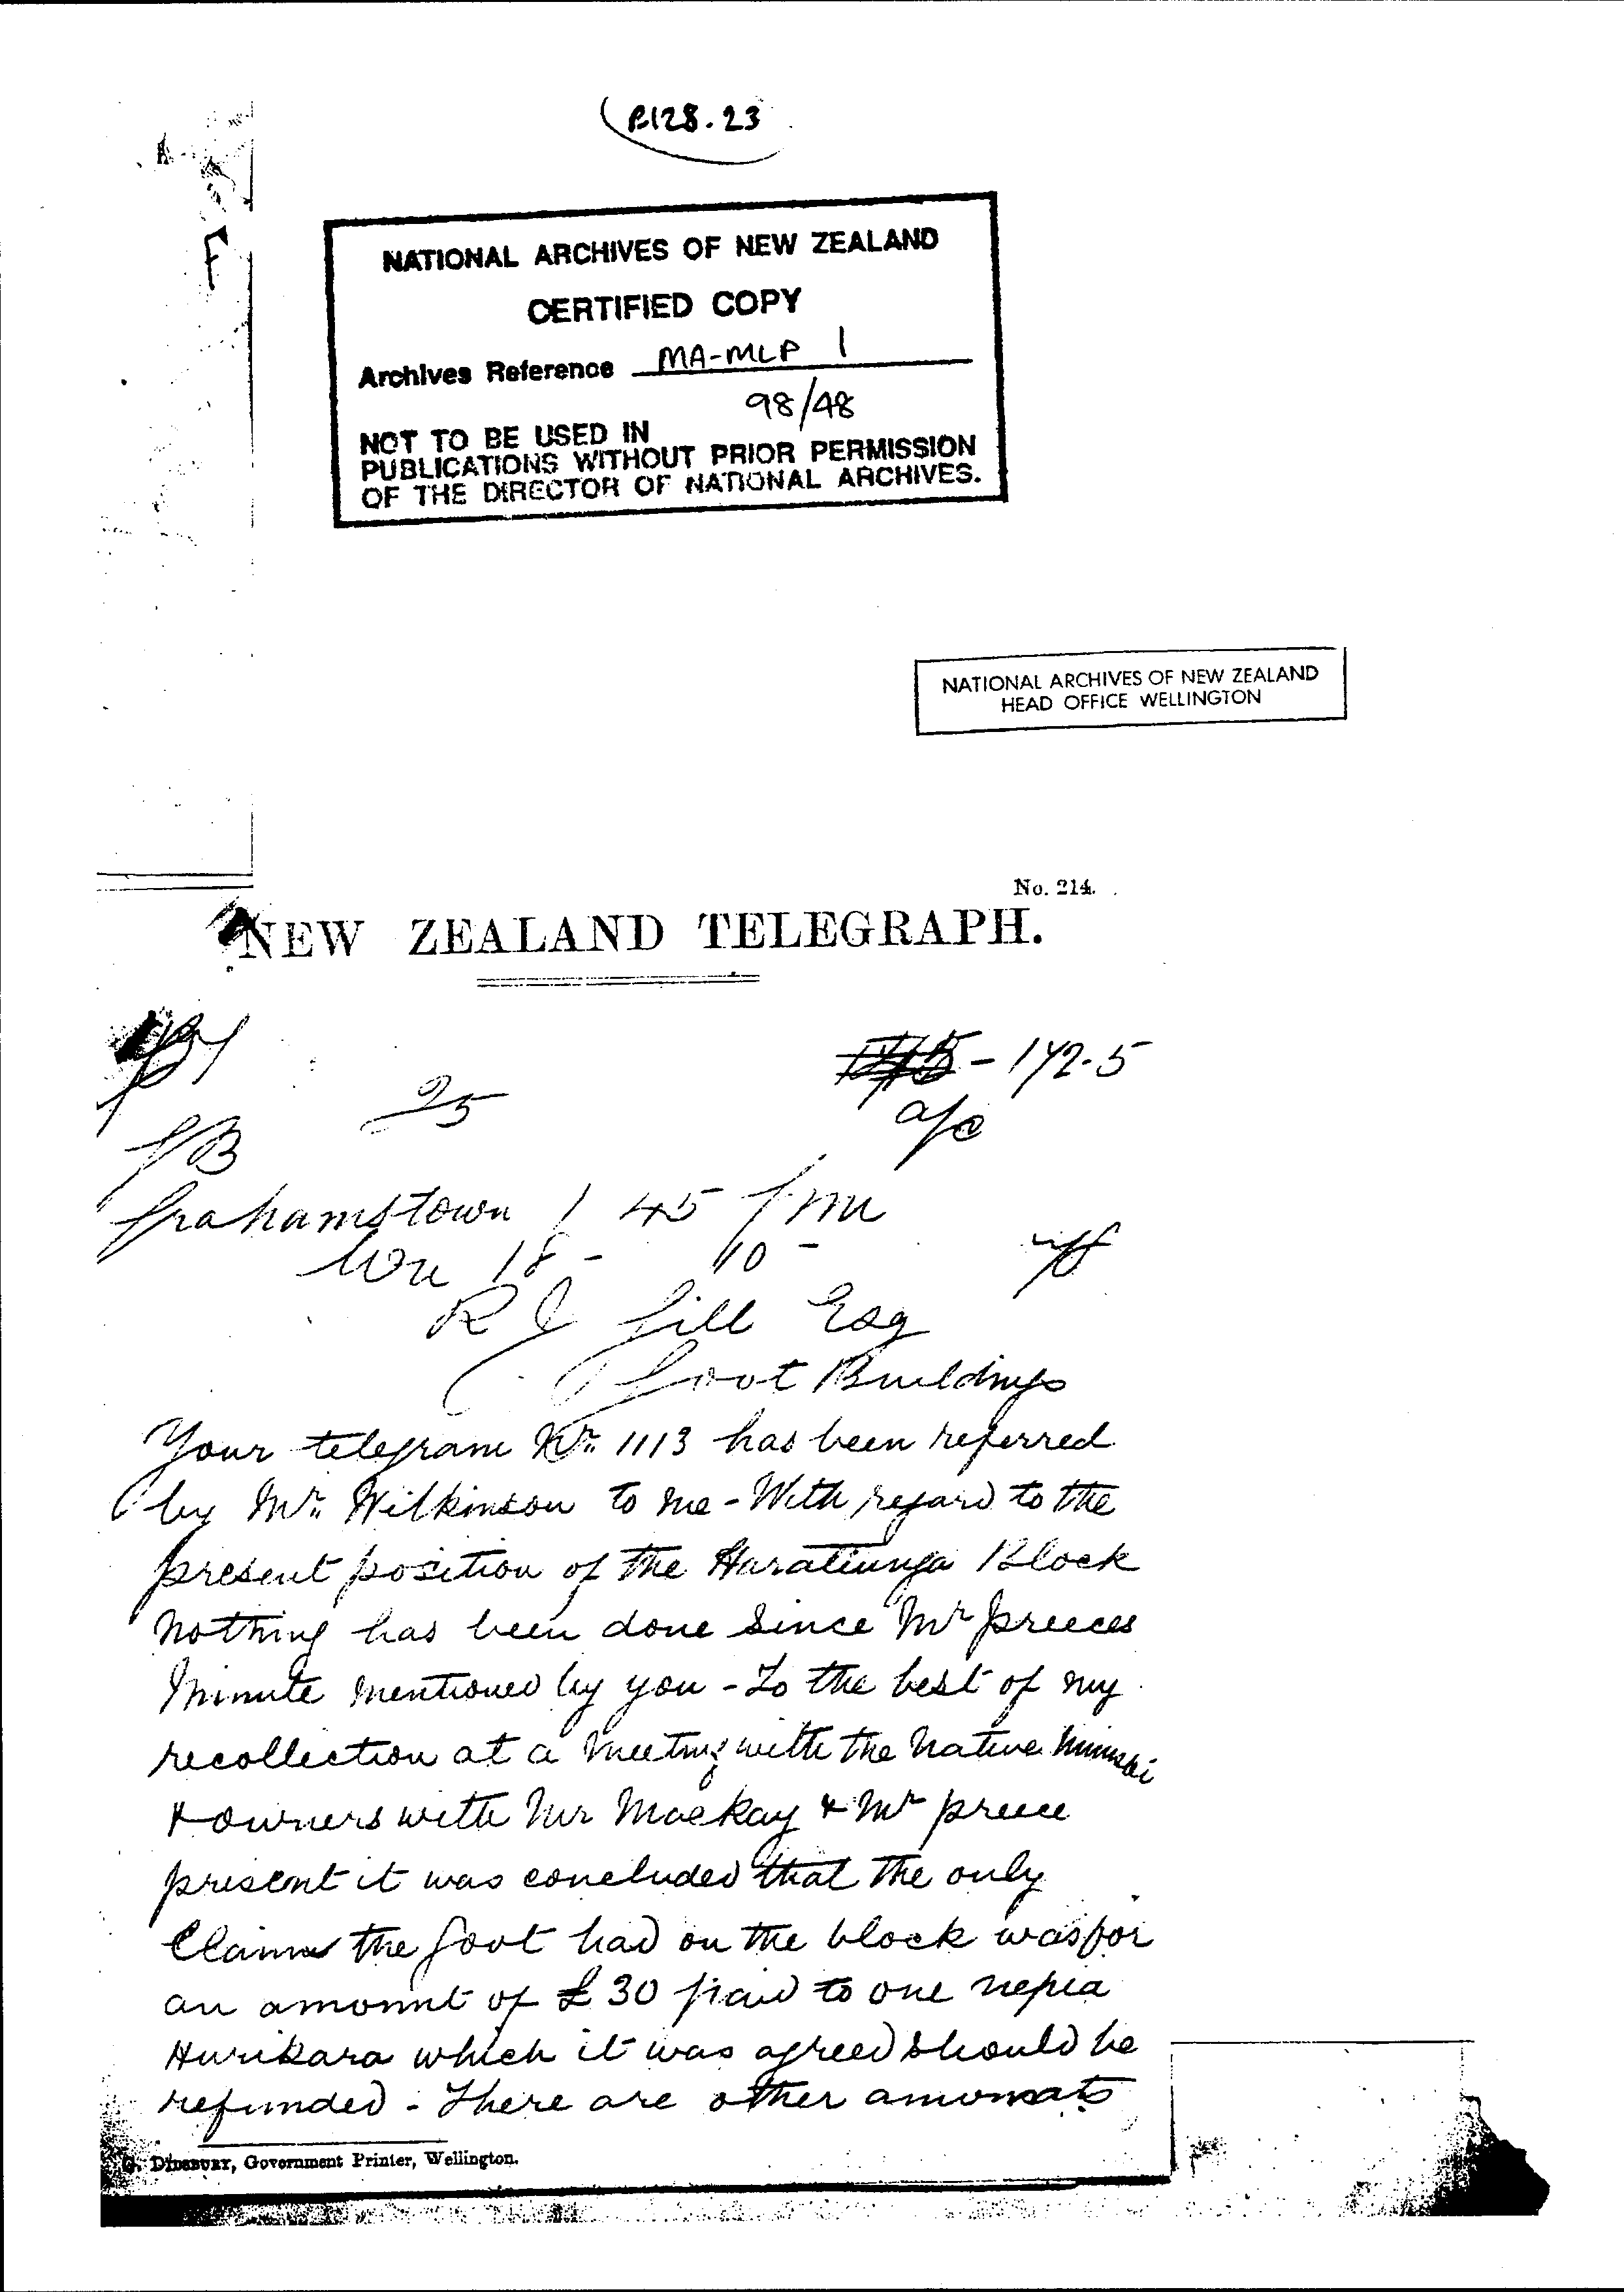 P128.23
F
NATIONAL ARCHIVES OF NEW ZEALAND
CERTIFIED COPY
Archives Reference MA-MLP 1
98/48
NOT TO BE USED IN
PUBLICATIONS WITHOUT PRIOR PERMISSION
OF THE DIRECTOR OF NATIONAL ARCHIVES.
NATIONAL ARCHIVES OF NEW ZEALAND
HEAD OFFICE WELLINGTON
No. 214.
NEW ZEALAND TELEGRAPH.
- 172.5
25
a/c
Grahamstown 1 45 pm
Wn 18 - 10 -
R J Gill Esq
Govt Buildings
Your telegram No. 1113 has been referred
by Mr. Wilkinson to me - With regard to the
present position of the Harataunga Block
nothing has been done since Mr preeces
Minute mentioned by you - To the best of my
recollection at a meeting with the Native
& owners with Mr Mackay & Mr preece
present it was concluded that the only
Claim the Govt had on the block was for
an amount of £30 paid to one nepia
Hurikara which it was agreed should be
refunded - There are other amounts
G. Didsbury, Government Printer, Wellington.